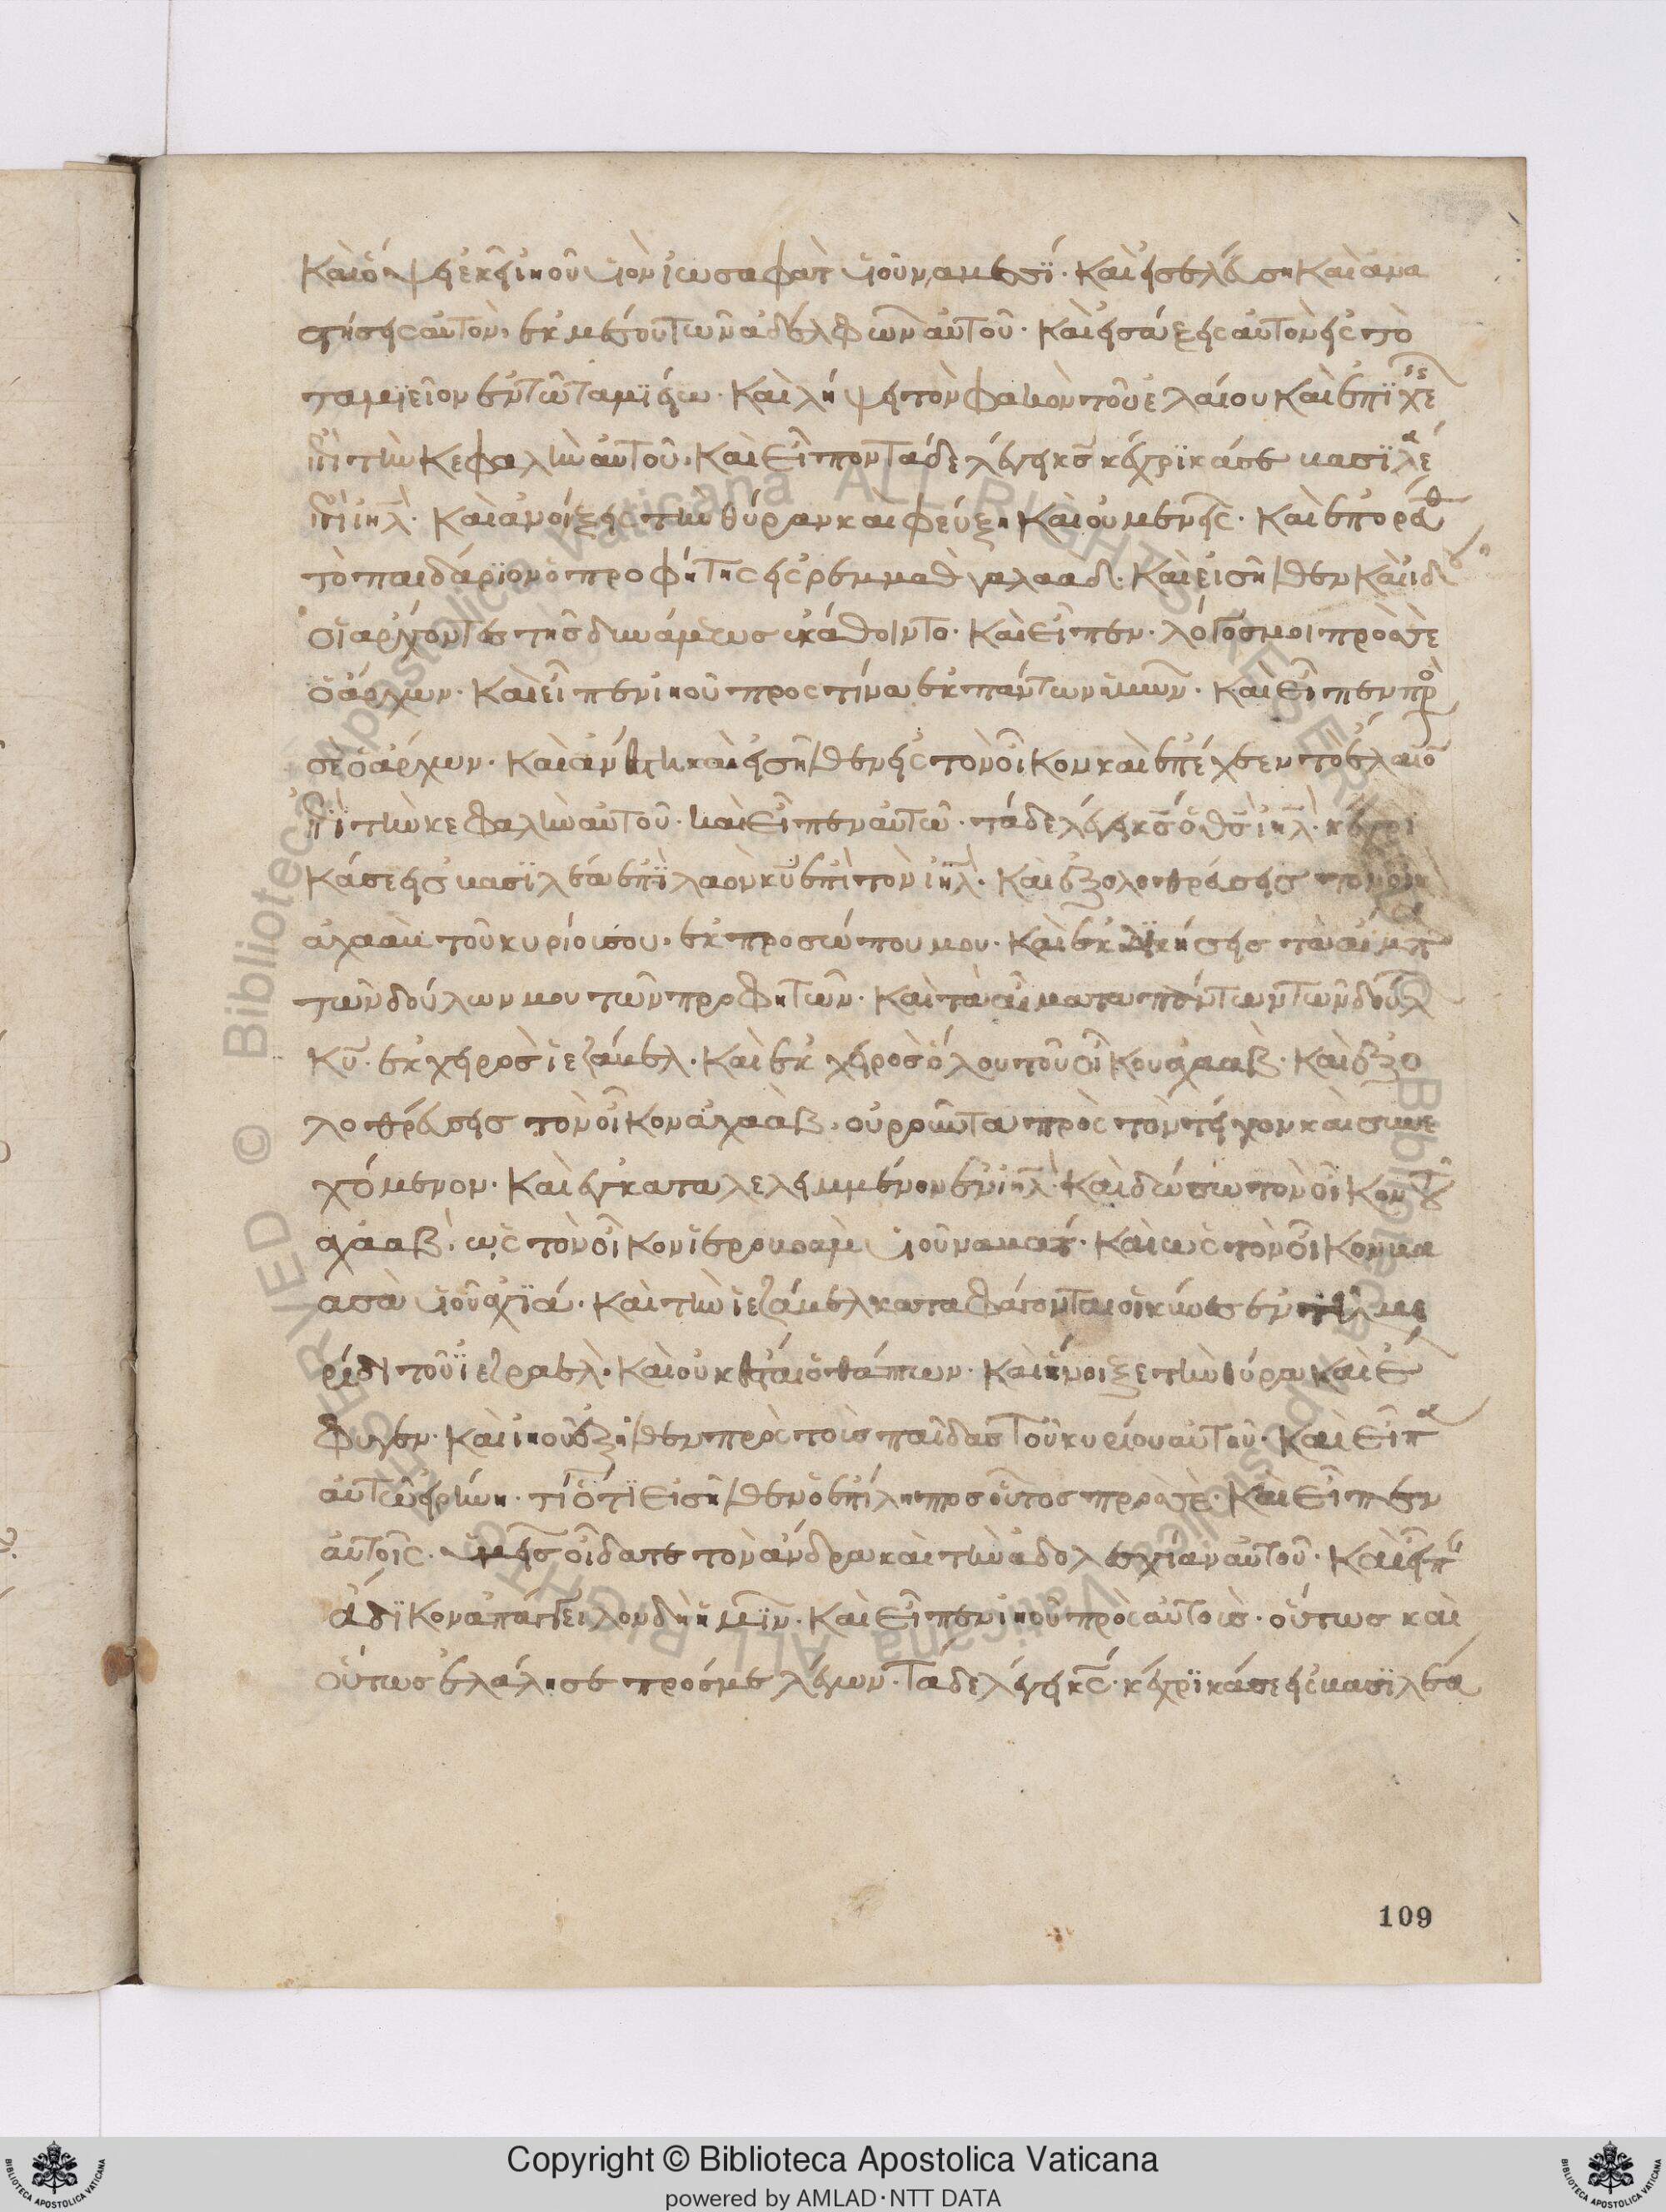 Καὶ ὄψη ἐκεῖ ἰηοῦ υἱὸν ἰωσαφὰτ υἱοῦ ναμεσί· Καὶ εἰσελεύση Καὶ ἀνα
στήσεις αὐτὸν, ἐκ μέσου τῶν ἀδελφῶν αὐτοῦ· Καὶ εἰσάξεις αὐτὸν εἰς τὸ
ταμϊεῖον ἐν τῶ ταμϊείω· Καὶ λήψη τὸν φακὸν τοῦ ἐλαίου Καὶ ἐπιχεεῖς
ἐπὶ τὴν Κεφαλὴν αὐτοῦ· Καὶ εἶπον τάδε λέγει κς κέχρικά σε βασιλέα
ἐπὶ ιηλ· Καὶ ἀνοίξεις τὴν θύραν καὶ φεύξη Καὶ οὐ μενεῖς· Καὶ ἐπορεύθη
τὸ παιδάριον ὁ προφήτης εἰς ρεμμαθ γαλααδ· Καὶ εἰσῆλθεν Καὶ ἰδοὺ
οἱ ἄρχοντες τῆς δυνάμεως ἐκάθηντο· Καὶ εἶπεν· λόγος μοι πρὸς σὲ
ὁ ἄρχων· Καὶ εἶπεν ἰηοῦ πρὸς τίνα ἐκ πάντων ἡμῶν· Καὶ εἶπεν πρὸς
σὲ ὁ ἄρχων· Καὶ ἀνέστη καὶ εἰσῆλθεν εἰς τὸν οἶκον καὶ ἐπέχεεν τὸ ἔλαιον
ἐπὶ τὴν κεφαλὴν αὐτοῦ· Καὶ εἶπεν αὐτῶ· τάδε λέγει κς ὁ θς ιηλ· κέχρι
Κά σε εἰς βασιλέα ἐπὶ λαὸν κυ ἐπὶ τὸν ιηλ· Καὶ ἐξολοθρεύσεις τὸν οἶκον
ἀχαὰβ τοῦ κυρίου σου· ἐκ προσώπου μου· Καὶ ἐκδικήσεις τὰ αἵματα
τῶν δούλων μου τῶν προφητῶν· Καὶ τὰ αἵματα πάντων τῶν δούλων
Κυ· ἐκ χειρὸς ἰεζάβελ· Καὶ ἐκ χειρὸς ὅλου τοῦ οἴκου ἀχαάβ· Καὶ ἐξο
λοθρεύσεις τὸν οἶκον ἀχαάβ· οὐροῦντα πρὸς τὸν τεῖχον καὶ συνε
χόμενον· Καὶ ἐγκαταλελειμμένον ἐν ιηλ· Καὶ δώσω τὸν οἶκον τοῦ
ἀχαάβ· ὡς τὸν οἶκον ἱεροβοὰμ υἱοῦ ναβάτ· Καὶ ὡς τὸν οἶκον βα
ασὰ υἱοῦ ἀχϊά· Καὶ τὴν ἰεζάβελ καταφάγονται οἱ κύνες ἐν τῇ με
ρίδι τοῦ ἰεζραέλ· Καὶ οὐκ ἔσται ὁ θάπτων· Καὶ ἤνοιξε τὴν θύραν Καὶ ἔ
φυγεν· Καὶ ἰηοῦ ἐξῆλθεν πρὸς τοὺς παῖδας τοῦ κυρίου αὐτοῦ· Καὶ εἶπαν
αὐτῶ εἰρήνη· τί ὅτι εἰσῆλθεν ὁ ἐπίληπτος οὗτος πρὸς σέ· Καὶ εἶπεν
αὐτοῖς· ὑμεῖς οἴδατε τὸν ἄνδρα καὶ τὴν ἀδολεσχίαν αὐτοῦ· Καὶ εἶπον
ἄδικον ἀπάγγειλον δὴ ἡμῖν· Καὶ εἶπεν ἰηοῦ πρὸς αὐτούς· οὕτως καὶ
οὕτως ἐλάλησε πρός με λέγων· Τάδε λέγει κς· κέχρικά σε εἰς βασιλέα
109
Copyright © Biblioteca Apostolica Vaticana
powered by AMLAD·NTT DATA